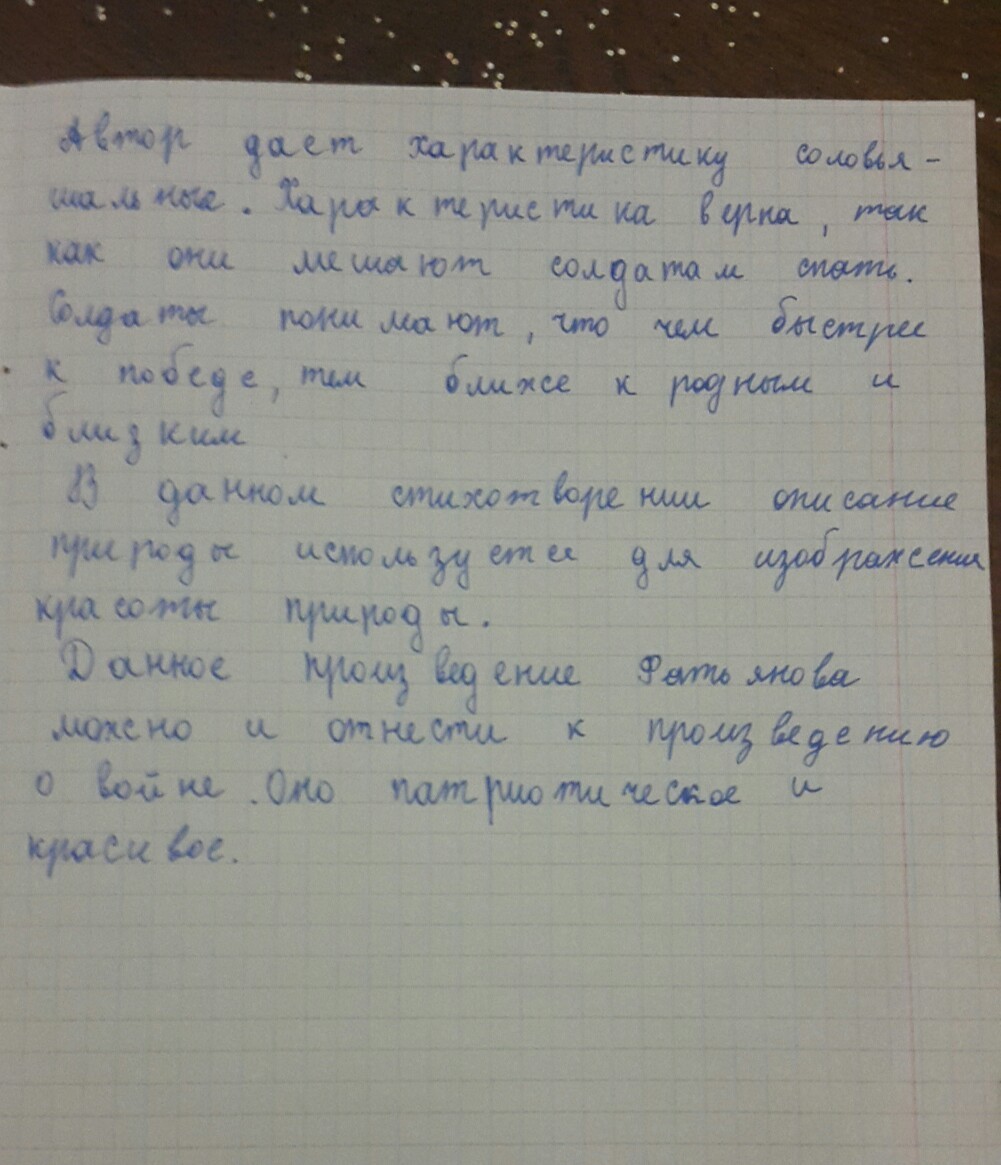 Автор дает характеристику соловья -
шальные. Характеристика верна, так
как они мешают солдатам спать.
Солдаты понимают, что чем быстрее
к победе, тем ближе к родным и
близким
В данном стихотворении описание
природы используется для изображения
красоты природы.
Данное произведение Фатьянова
можно и отнести к произведению
о войне. Оно патриотическое и
красивое.